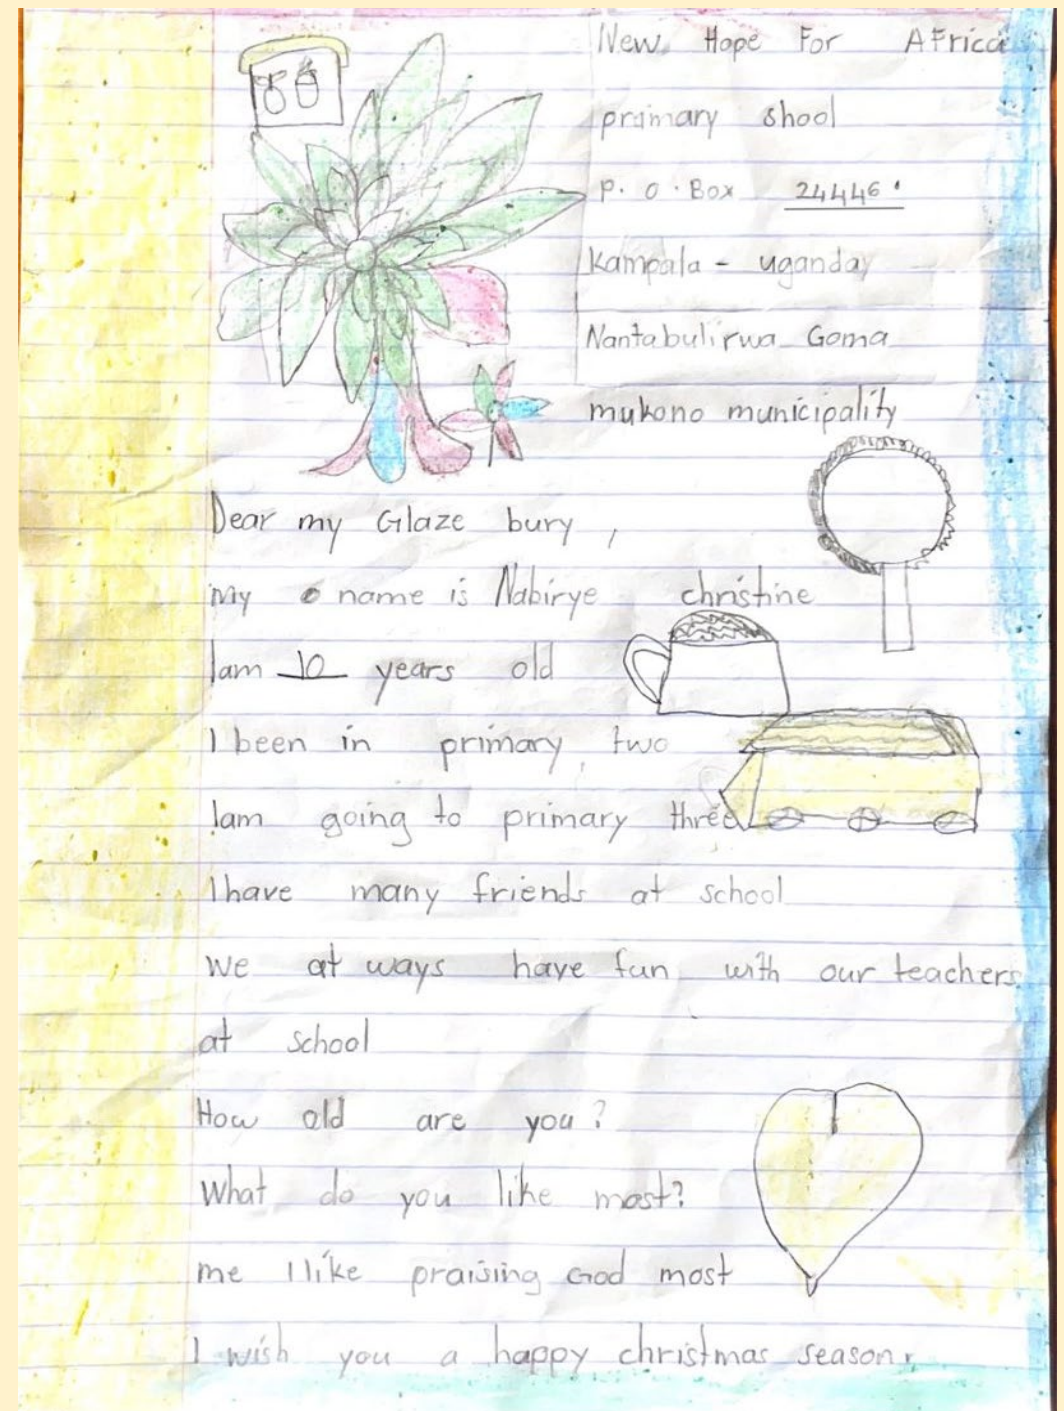 New Hope For AFrica
primary shool
P. O. Box 24446.
Kampala - uganda
Nantabulirwa Goma
mukono municipality
Dear my Glaze bury,
my name is Nabirye christine
Iam 10 years old
I been in primary two
Iam going to primary three
I have many friends at school
we at ways have fun with our teachers
at school
How old are you?
What do you like most?
me I like praising God most
I wish you a happy christmas season.